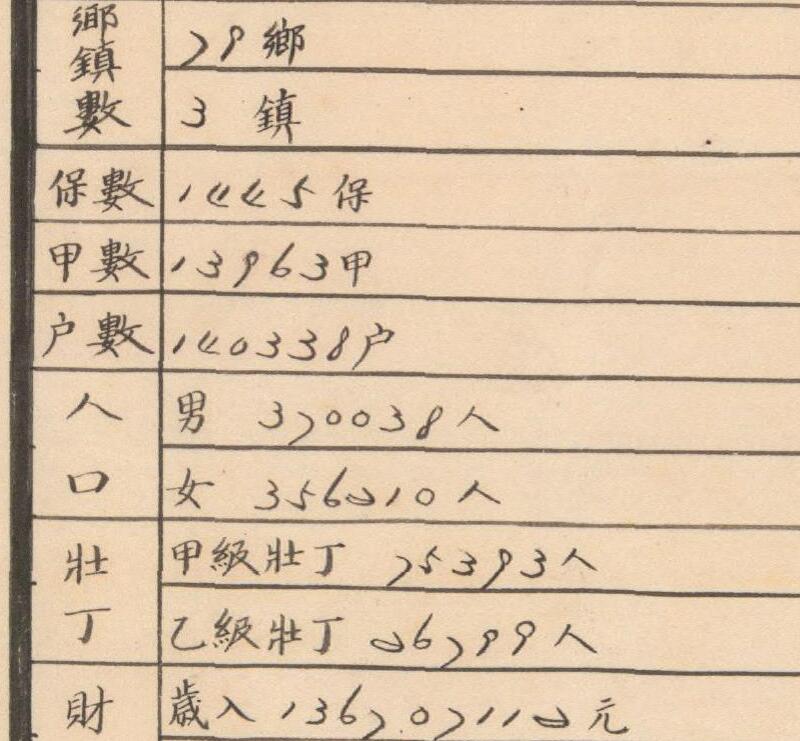 鄉鎮數 79鄉
3 鎮
保數 1445保
甲數 13963甲
户數 140338户
人口 男 370038人
女 356210人
壯丁 甲級壯丁 75393人
乙級壯丁 26799人
財 歲入 136707112元